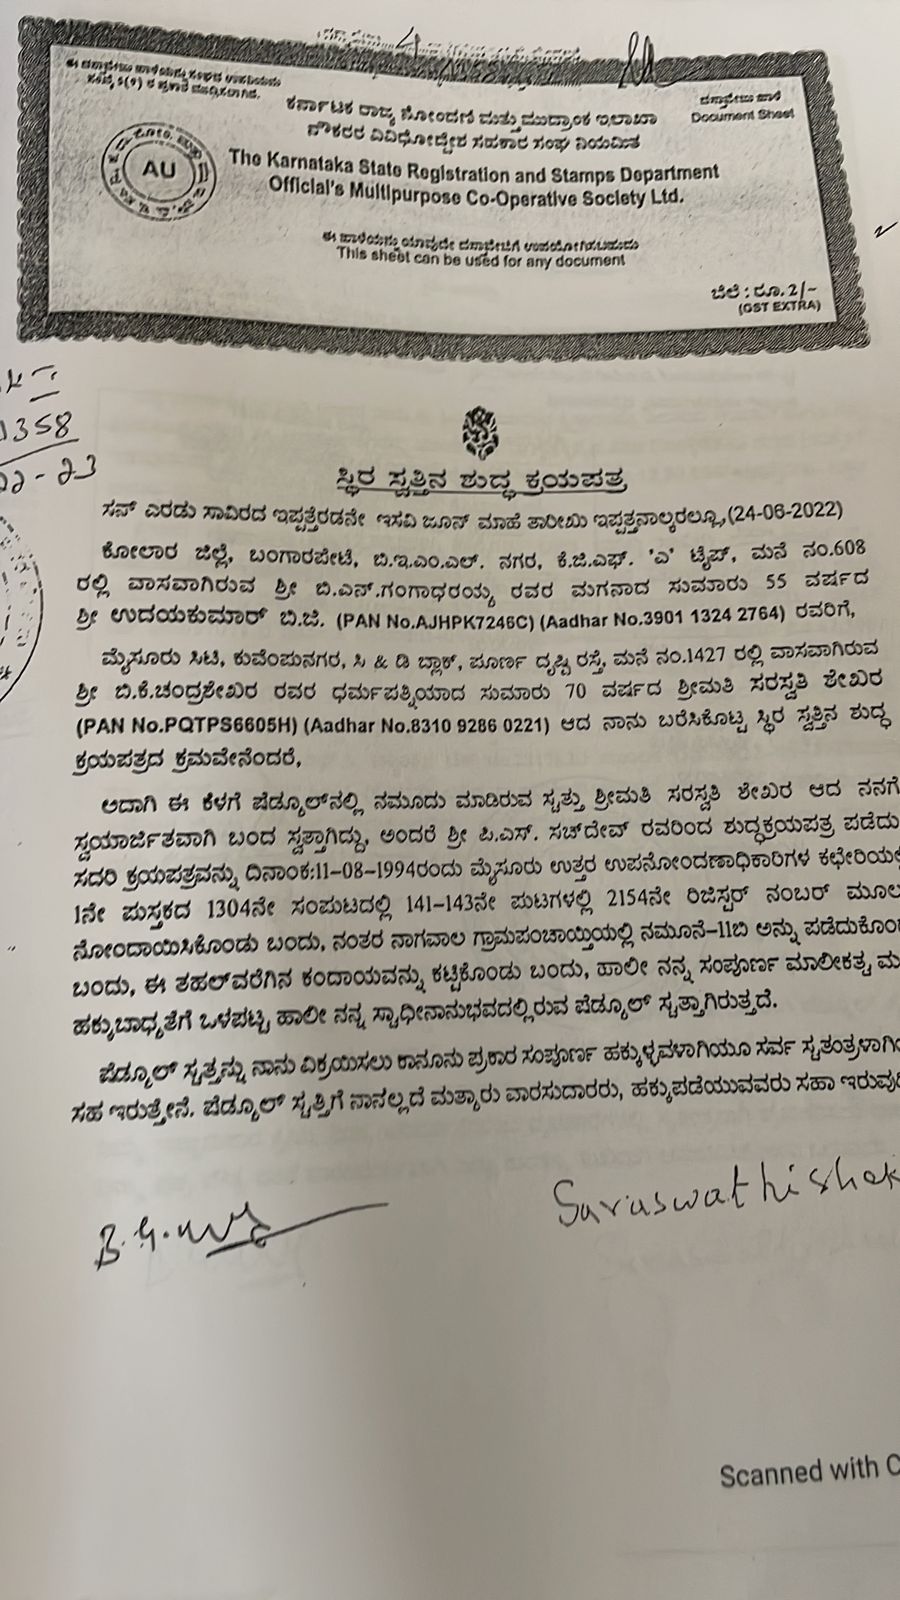 ದಸ್ತಾವೇಜು ಹಾಳೆ
Document Sheet
ಕರ್ನಾಟಕ ರಾಜ್ಯ ನೋಂದಣಿ ಮತ್ತು ಮುದ್ರಾಂಕ ಇಲಾಖಾ
ನೌಕರರ ವಿವಿಧೋದ್ದೇಶ ಸಹಕಾರ ಸಂಘ ನಿಯಮಿತ
AU
The Karnataka State Registration and Stamps Department
Official's Multipurpose Co-Operative Society Ltd.
ಈ ಹಾಳೆಯನ್ನು ಯಾವುದೇ ದಸ್ತಾವೇಜಿಗೆ ಉಪಯೋಗಿಸಬಹುದು
This sheet can be used for any document
ಬೆಲೆ : ರೂ. 2/-
(GST EXTRA)
1358
22-23
ಸ್ಥಿರ ಸ್ವತ್ತಿನ ಶುದ್ಧ ಕ್ರಯಪತ್ರ
ಸನ್ ಎರಡು ಸಾವಿರದ ಇಪ್ಪತ್ತೆರಡನೇ ಇಸವಿ ಜೂನ್ ಮಾಹೆ ತಾರೀಖು ಇಪ್ಪತ್ತನಾಲ್ಕರಲ್ಲೂ,(24-06-2022)
ಕೋಲಾರ ಜಿಲ್ಲೆ, ಬಂಗಾರಪೇಟೆ, ಬಿ.ಇ.ಎಂ.ಎಲ್. ನಗರ, ಕೆ.ಜಿ.ಎಫ್. 'ಎ' ಟೈಪ್, ಮನೆ ನಂ.608
ರಲ್ಲಿ ವಾಸವಾಗಿರುವ ಶ್ರೀ ಬಿ.ಎನ್.ಗಂಗಾಧರಯ್ಯ ರವರ ಮಗನಾದ ಸುಮಾರು 55 ವರ್ಷದ
ಶ್ರೀ ಉದಯಕುಮಾರ್ ಬಿ.ಜಿ. (PAN No.AJHPK7246C) (Aadhar No.3901 1324 2764) ರವರಿಗೆ,
ಮೈಸೂರು ಸಿಟಿ, ಕುವೆಂಪುನಗರ, ಸಿ & ಡಿ ಬ್ಲಾಕ್, ಪೂರ್ಣ ದೃಷ್ಟಿ ರಸ್ತೆ, ಮನೆ ನಂ.1427 ರಲ್ಲಿ ವಾಸವಾಗಿರುವ
ಶ್ರೀ ಬಿ.ಕೆ.ಚಂದ್ರಶೇಖರ ರವರ ಧರ್ಮಪತ್ನಿಯಾದ ಸುಮಾರು 70 ವರ್ಷದ ಶ್ರೀಮತಿ ಸರಸ್ವತಿ ಶೇಖರ
(PAN No.PQTPS6605H) (Aadhar No.8310 9286 0221) ಆದ ನಾನು ಬರೆಸಿಕೊಟ್ಟ ಸ್ಥಿರ ಸ್ವತ್ತಿನ ಶುದ್ಧ
ಕ್ರಯಪತ್ರದ ಕ್ರಮವೇನೆಂದರೆ,
ಅದಾಗಿ ಈ ಕೆಳಗೆ ಷೆಡ್ಯೂಲ್‌ನಲ್ಲಿ ನಮೂದು ಮಾಡಿರುವ ಸ್ವತ್ತು ಶ್ರೀಮತಿ ಸರಸ್ವತಿ ಶೇಖರ ಆದ ನನಗೆ
ಸ್ವಯಾರ್ಜಿತವಾಗಿ ಬಂದ ಸ್ವತ್ತಾಗಿದ್ದು, ಅಂದರೆ ಶ್ರೀ ಪಿ.ಎಸ್. ಸಚ್‌ದೇವ್ ರವರಿಂದ ಶುದ್ಧಕ್ರಯಪತ್ರ ಪಡೆದು
ಸದರಿ ಕ್ರಯಪತ್ರವನ್ನು ದಿನಾಂಕ:11-08-1994ರಂದು ಮೈಸೂರು ಉತ್ತರ ಉಪನೋಂದಣಾಧಿಕಾರಿಗಳ ಕಛೇರಿಯ
1ನೇ ಪುಸ್ತಕದ 1304ನೇ ಸಂಪುಟದಲ್ಲಿ 141-143ನೇ ಪುಟಗಳಲ್ಲಿ 2154ನೇ ರಿಜಿಸ್ಟರ್ ನಂಬರ್ ಮೂಲ
ನೋಂದಾಯಿಸಿಕೊಂಡು ಬಂದು, ನಂತರ ನಾಗವಾಲ ಗ್ರಾಮಪಂಚಾಯ್ತಿಯಲ್ಲಿ ನಮೂನೆ-11ಬಿ ಅನ್ನು ಪಡೆದುಕೊಂ
ಬಂದು, ಈ ತಹಲ್‌ವರೆಗಿನ ಕಂದಾಯವನ್ನು ಕಟ್ಟಿಕೊಂಡು ಬಂದು, ಹಾಲೀ ನನ್ನ ಸಂಪೂರ್ಣ ಮಾಲೀಕತ್ವ ಮ
ಹಕ್ಕುಬಾಧ್ಯತೆಗೆ ಒಳಪಟ್ಟ ಹಾಲೀ ನನ್ನ ಸ್ವಾಧೀನಾನುಭವದಲ್ಲಿರುವ ಷೆಡ್ಯೂಲ್ ಸ್ವತ್ತಾಗಿರುತ್ತದೆ.
ಷೆಡ್ಯೂಲ್ ಸ್ವತ್ತನ್ನು ನಾನು ವಿಕ್ರಯಿಸಲು ಕಾನೂನು ಪ್ರಕಾರ ಸಂಪೂರ್ಣ ಹಕ್ಕುಳ್ಳವಳಾಗಿಯೂ ಸರ್ವ ಸ್ವತಂತ್ರಳಾಗಿ
ಸಹ ಇರುತ್ತೇನೆ. ಷೆಡ್ಯೂಲ್ ಸ್ವತ್ತಿಗೆ ನಾನಲ್ಲದೆ ಮತ್ಯಾರು ವಾರಸುದಾರರು, ಹಕ್ಕುಪಡೆಯುವವರು ಸಹಾ ಇರುವು
Saraswathi Shek
B.G.
Scanned with C